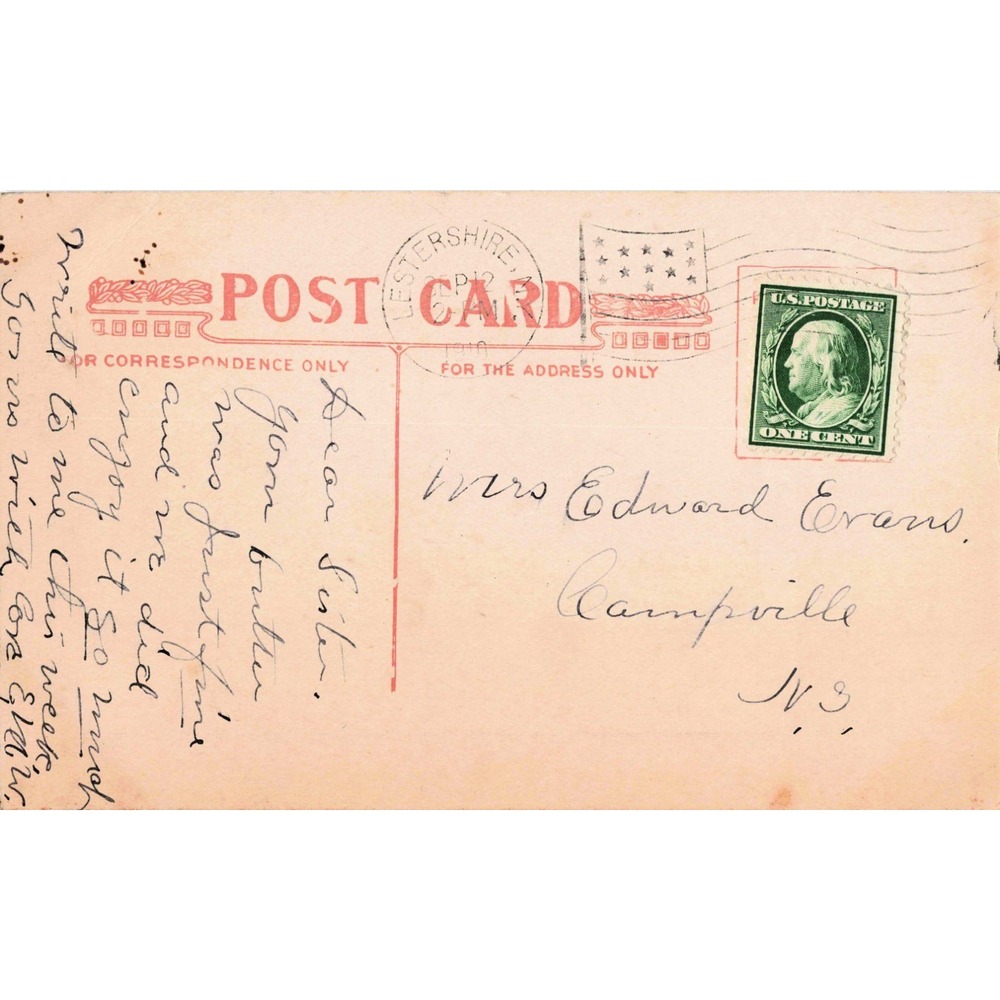 POST CARD
LESTERSHIRE, N.
SEP 12
M
1910
U.S. POSTAGE
ONE CENT
FOR CORRESPONDENCE ONLY
FOR THE ADDRESS ONLY
Dear Sister.
Your butter
was just fine
and we did
enjoy it so much
Write to me this week,
Yours with love
Mrs Edward Evans.
Campville
N.Y.